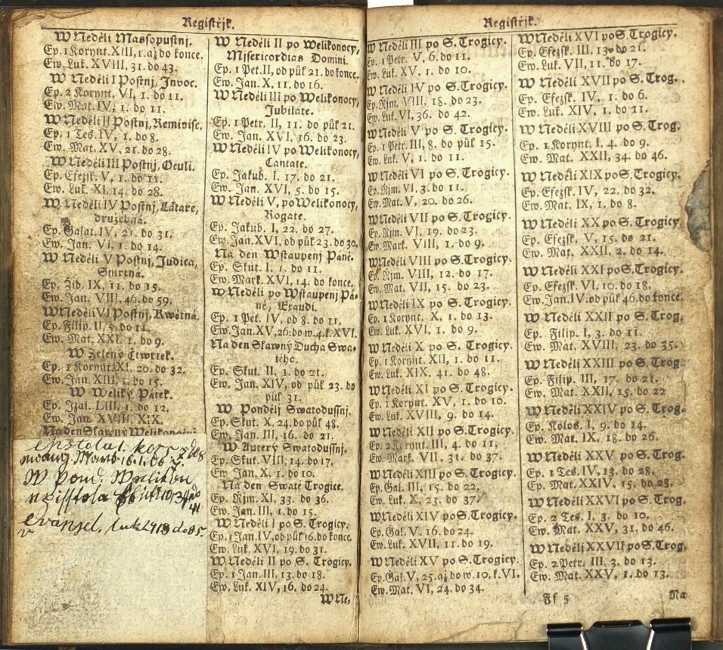 Registřjk.
W Neděli Massopustnj.
Ep. 1 Korynt. XIII, 1. až do konce.
Ew. Luk. XVIII, 31. do 43.
W Neděli I Postnj, Invoc.
Ep. 2 Korynt. VI, 1. do 11.
Ew. Mat. IV, 1. do 11.
W Neděli II Postnj, Reminisc.
Ep. 1 Tes. IV, 1. do 8.
Ew. Mat. XV, 21. do 28.
W Neděli III Postnj, Oculi.
Ep. Efezsk. V, 1. do 11.
Ew. Luk. XI, 14. do 28.
W Neděli IV Postnj, Lätare,
družebná.
Ep. Galat. IV, 21. do 31.
Ew. Jan. VI, 1. do 14.
W Neděli V Postnj, Judica,
Smrtná.
Ep. Žid. IX, 11. do 15.
Ew. Jan. VIII, 46. do 59.
W Neděli VI Postnj, Kwětná.
Ep. Filip. II, 5. do 11.
Ew. Mat. XXI, 1. do 9.
W Zelený Čtwrtek.
Ep. 1 Korynt. XI, 20. do 32.
Ew. Jan. XIII, 1. do 15.
W Weliký Pátek.
Ep. Izai. LIII, 1. do 12.
Ew. Jan. XVIII. XIX.
Na den Slawný Welikonočnj
W Neděli II po Welikonocy,
Misericordias Domini.
Ep. 1 Pet. II, od půl 21. do konce.
Ew. Jan. X, 11. do 16.
W Neděli III po Welikonocy,
Jubilate.
Ep. 1 Petr. II, 11. do půl 21.
Ew. Jan. XVI, 16. do 23.
W Neděli IV po Welikonocy,
Cantate.
Ep. Jakub. I, 17. do 21.
Ew. Jan. XVI, 5. do 15.
W Neděli V, po Welikonocy,
Rogate.
Ep. Jakub. I, 22. do 27.
Ew. Jan. XVI, od půl 23. do 30.
Na den Wstaupenj Páně.
Ep. Skut. I, 1. do 11.
Ew. Mark. XVI, 14. do konce.
W Neděli po Wstaupenj Pá-
ně, Exaudi.
Ep. 1 Pet. IV, od 8. do 11.
Ew. Jan. XV, 26. do w. 4. k. XVI.
Na den Slawný Ducha Swa-
tého.
Ep. Skut. II, 1. do 21.
Ew. Jan. XIV, od půl 23. do
půl 31.
W Ponděli Swatodussnj.
Ep. Skut. X, 24. do půl 48.
Ew. Jan. III, 16. do 21.
W Auterý Swatodussnj.
Ep. Skut. VIII, 14. do 17.
Ew. Jan. X, 1. do 10.
Na den Swaté Trogice.
Ep. Řjm. XI, 33. do 36.
Ew. Jan. III, 1. do 15.
W Neděli I po S. Trogicy.
Ep. 1 Jan. IV, od půl 16. do konce.
Ew. Luk. XVI, 19. do 31.
W Neděli II po S. Trogicy.
Ep. 1 Jan. III, 13. do 18.
Ew. Luk. XIV, 16. do 24.
W Ne-
Registřjk.
W Neděli III po S. Trogicy.
Ep. 1 Petr. V, 6. do 11.
Ew. Luk. XV, 1. do 10.
W Neděli IV po S. Trogicy.
Ep. Řjm. VIII, 18. do 23.
Ew. Luk. VI, 36. do 42.
W Neděli V po S. Trogicy.
Ep. 1 Petr. III, 8. do půl 15.
Ew. Luk. V, 1. do 11.
W Neděli VI po S. Trogicy.
Ep. Řjm. VI, 3. do 11.
Ew. Mat. V, 20. do 26.
W Neděli VII po S. Trogicy.
Ep. Řjm. VI, 19. do 23.
Ew. Mark. VIII, 1. do 9.
W Neděli VIII po S. Trogicy.
Ep. Řjm. VIII, 12. do 17.
Ew. Mat. VII, 15. do 23.
W Neděli IX po S. Trogicy.
Ep. 1 Korynt. X, 1. do 13.
Ew. Luk. XVI, 1. do 9.
W Neděli X po S. Trogicy.
Ep. 1 Korynt. XII, 1. do 11.
Ew. Luk. XIX, 41. do 48.
W Neděli XI po S. Trogicy.
Ep. 1 Korynt. XV, 1. do 10.
Ew. Luk. XVIII, 9. do 14.
W Neděli XII po S. Trogicy.
Ep. 2 Korynt. III, 4. do 11.
Ew. Mark. VII, 31. do 37.
W Neděli XIII po S. Trogicy.
Ep. Gal. III, 15. do 22.
Ew. Luk. X, 23. do 37.
W Neděli XIV po S. Trogicy.
Ep. Gal. V, 16. do 24.
Ew. Luk. XVII, 11. do 19.
W Neděli XV po S. Trogicy.
Ep. Gal. V, 25. až do w. 10. k. VI.
Ew. Mat. VI, 24. do 34.
W Neděli XVI po S. Trogicy.
Ep. Efezsk. III, 13. do 21.
Ew. Luk. VII, 11. do 17.
W Neděli XVII po S. Trog.
Ep. Efezsk. IV, 1. do 6.
Ew. Luk. XIV, 1. do 11.
W Neděli XVIII po S. Trog.
Ep. 1 Korynt. I, 4. do 9.
Ew. Mat. XXII, 34. do 46.
W Neděli XIX po S. Trogicy.
Ep. Efezsk. IV, 22. do 32.
Ew. Mat. IX, 1. do 8.
W Neděli XX po S. Trogicy.
Ep. Efezsk. V, 15. do 21.
Ew. Mat. XXII, 2. do 14.
W Neděli XXI po S. Trogicy.
Ep. Efezsk. VI, 10. do 18.
Ew. Jan. IV, od půl 46. do konce.
W Neděli XXII po S. Trog.
Ep. Filip. I, 3. do 11.
Ew. Mat. XVIII, 23. do 35.
W Neděli XXIII po S. Trog.
Ep. Filip. III, 17. do 21.
Ew. Mat. XXII, 15. do 22
W Neděli XXIV po S. Trog.
Ep. Kolos. I, 9. do 14.
Ew. Mat. IX, 18. do 26.
W Neděli XXV po S. Trog.
Ep. 1 Tes. IV, 13. do 28.
Ew. Mat. XXIV, 15. do 28.
W Neděli XXVI po S. Trog.
Ep. 2 Tes. I, 3. do 10.
Ew. Mat. XXV, 31. do 46.
W Neděli XXVII po S. Trog.
Ep. 2 Petr. III, 3. do 13.
Ew. Mat. XXV, 1. do 13.
Ff 5
Na